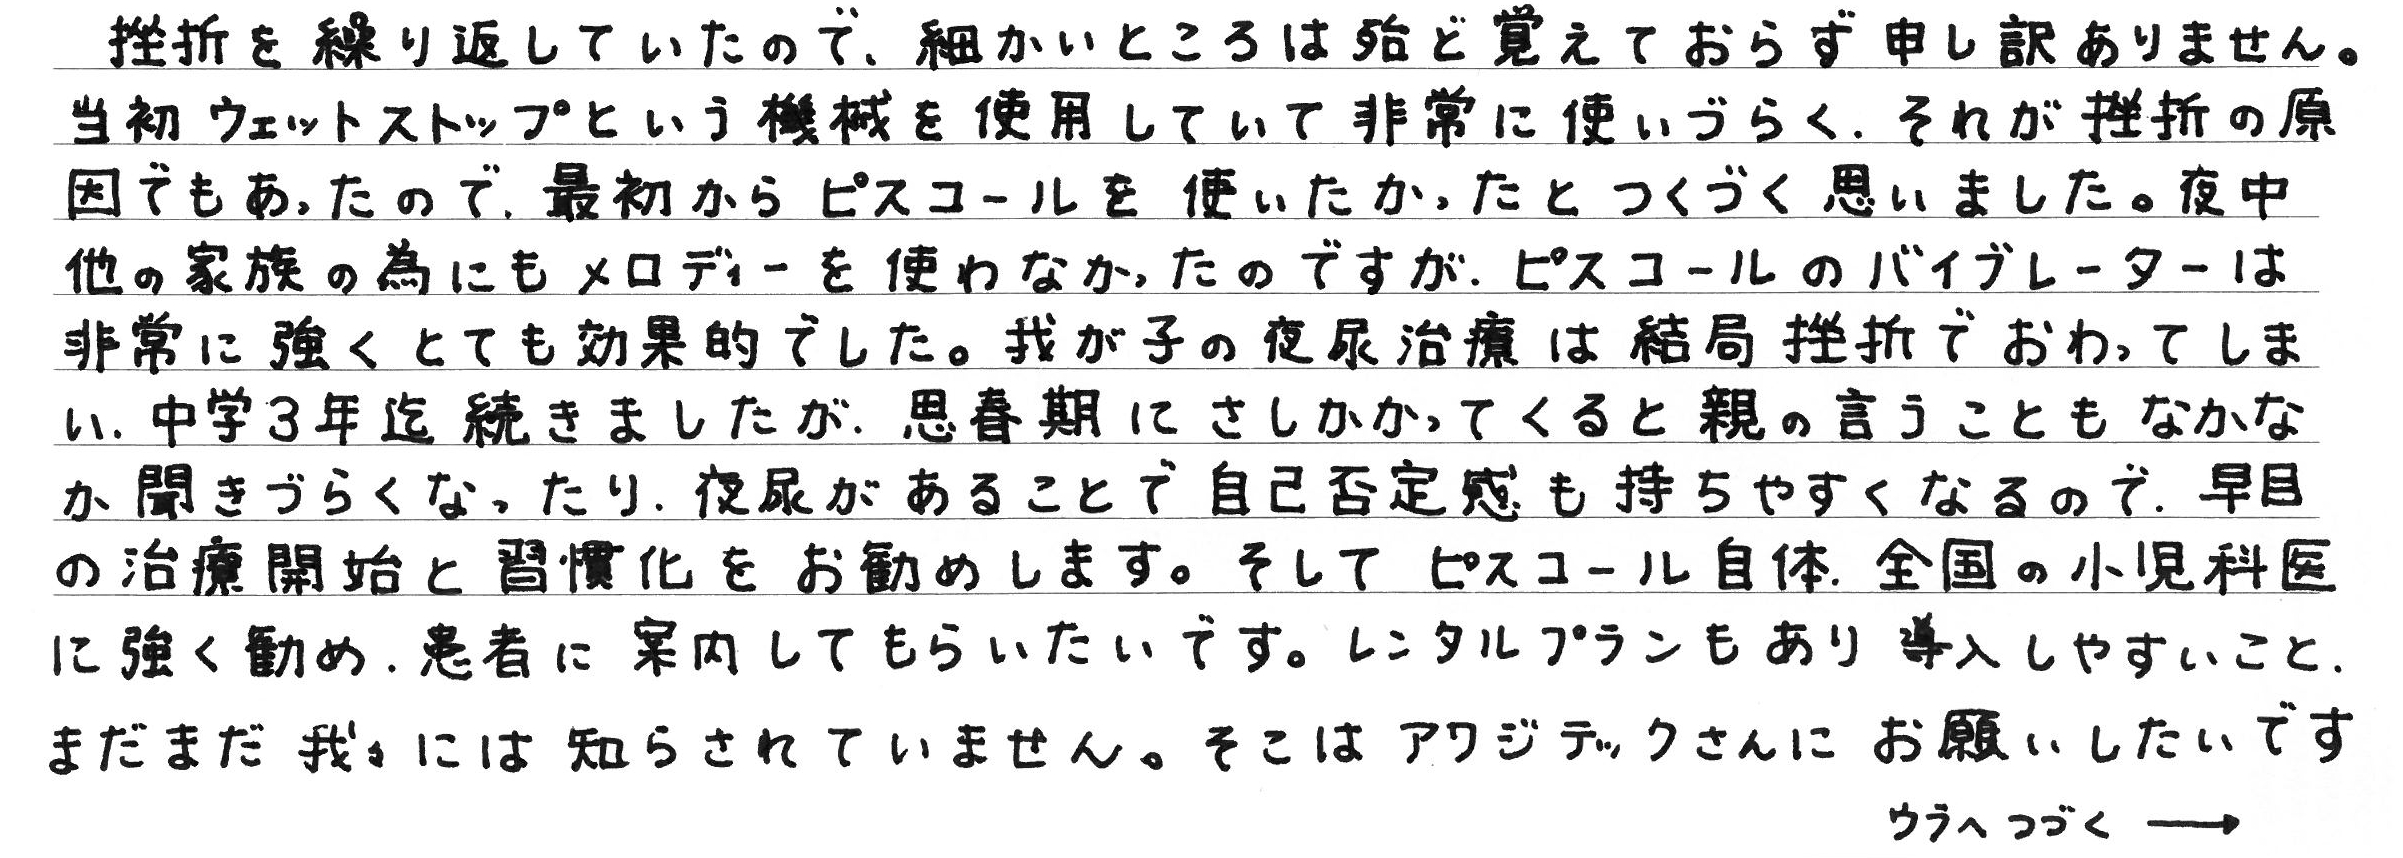 挫折を繰り返していたので、細かいところは殆ど覚えておらず申し訳ありません。
当初ウェットストップという機械を使用していて非常に使いづらく、それが挫折の原
因でもあったので、最初からピスコールを使いたかったとつくづく思いました。夜中
他の家族の為にもメロディーを使わなかったのですが、ピスコールのバイブレーターは
非常に強くとても効果的でした。我が子の夜尿治療は結局挫折でおわってしま
い、中学3年迄続きましたが、思春期にさしかかってくると親の言うこともなかな
か聞きづらくなったり、夜尿があることで自己否定感も持ちやすくなるので、早目
の治療開始と習慣化をお勧めします。そしてピスコール自体、全国の小児科医
に強く勧め、患者に案内してもらいたいです。レンタルプランもあり導入しやすいこと、
まだまだ我々には知らされていません。そこはアワジテックさんにお願いしたいです
ウラへつづく →